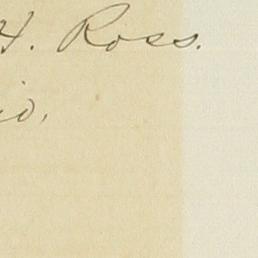 H. Ross.
io,